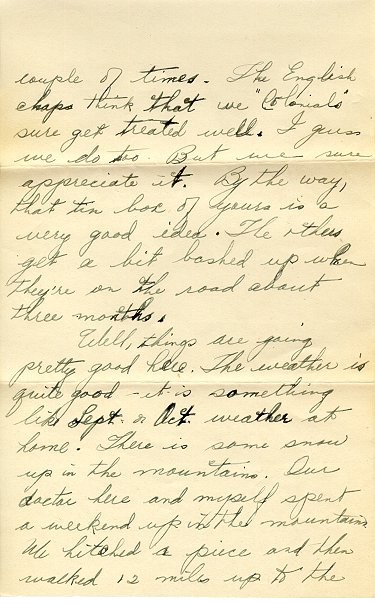 couple of times. The English
chaps think that we "Colonials"
sure get treated well. I guess
we do too. But we sure
appreciate it. By the way,
that tin box of yours is a
very good idea. The others
get a bit bashed up when
they're on the road about
three months.
Well, things are going
pretty good here. The weather is
quite good - it is something
like Sept. or Oct. weather at
home. There is some snow
up in the mountains. Our
doctor here and myself spent
a weekend up in the mountains.
We hitched a piece and then
walked 12 miles up to the